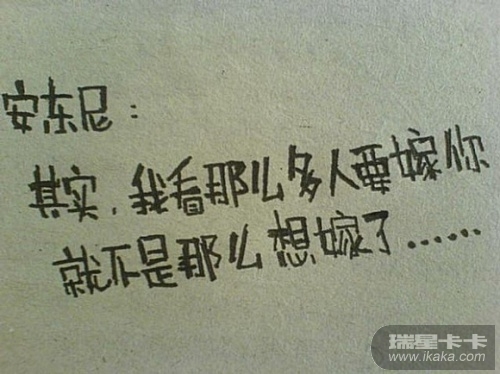 安东尼：
其实，我看那么多人要嫁你
就不是那么想嫁了……
瑞星卡卡
www.ikaka.com